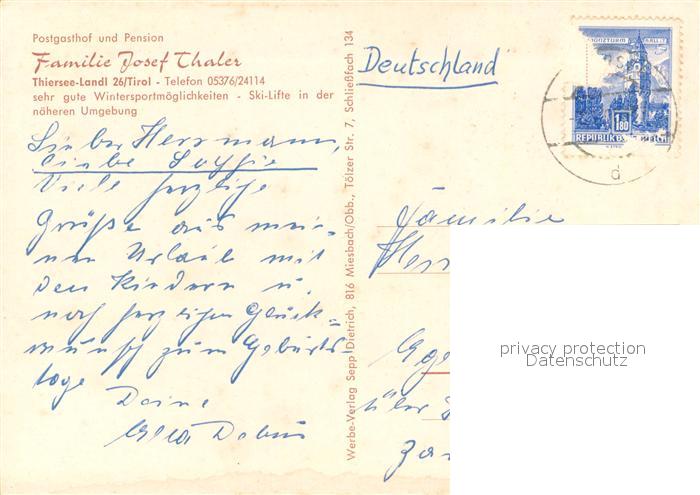 Postgasthof und Pension
Familie Josef Thaler
Thiersee-Landl 26/Tirol - Telefon 05376/24114
sehr gute Wintersportmöglichkeiten - Ski-Lifte in der
näheren Umgebung
Lieber Herrmann,
liebe Sophie
Viele herzliche
Grüße aus mei-
nen Urlaub mit
den Kindern u.
noch herzlichen Glück=
wunsch zum Geburts-
tage
Deine
Werbe-Verlag Sepp Dietrich, 816 Miesbach/Obb., Tölzer Str. 7, Schließfach 134
Deutschland
MÜNZTURM HALL I. T.
1.80
REPUBLIK ÖSTERREICH
d
Familie
Herr
über
privacy protection
Datenschutz